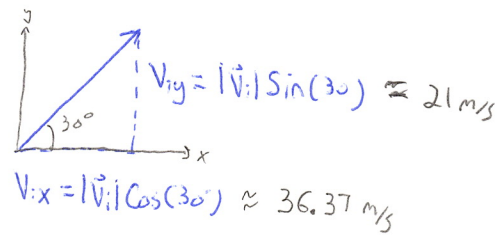 y
V⃗iy = |V⃗i| Sin(30) ≈ 21 m/s
30°
x
Vix = |V⃗i| Cos(30°) ≈ 36.37 m/s